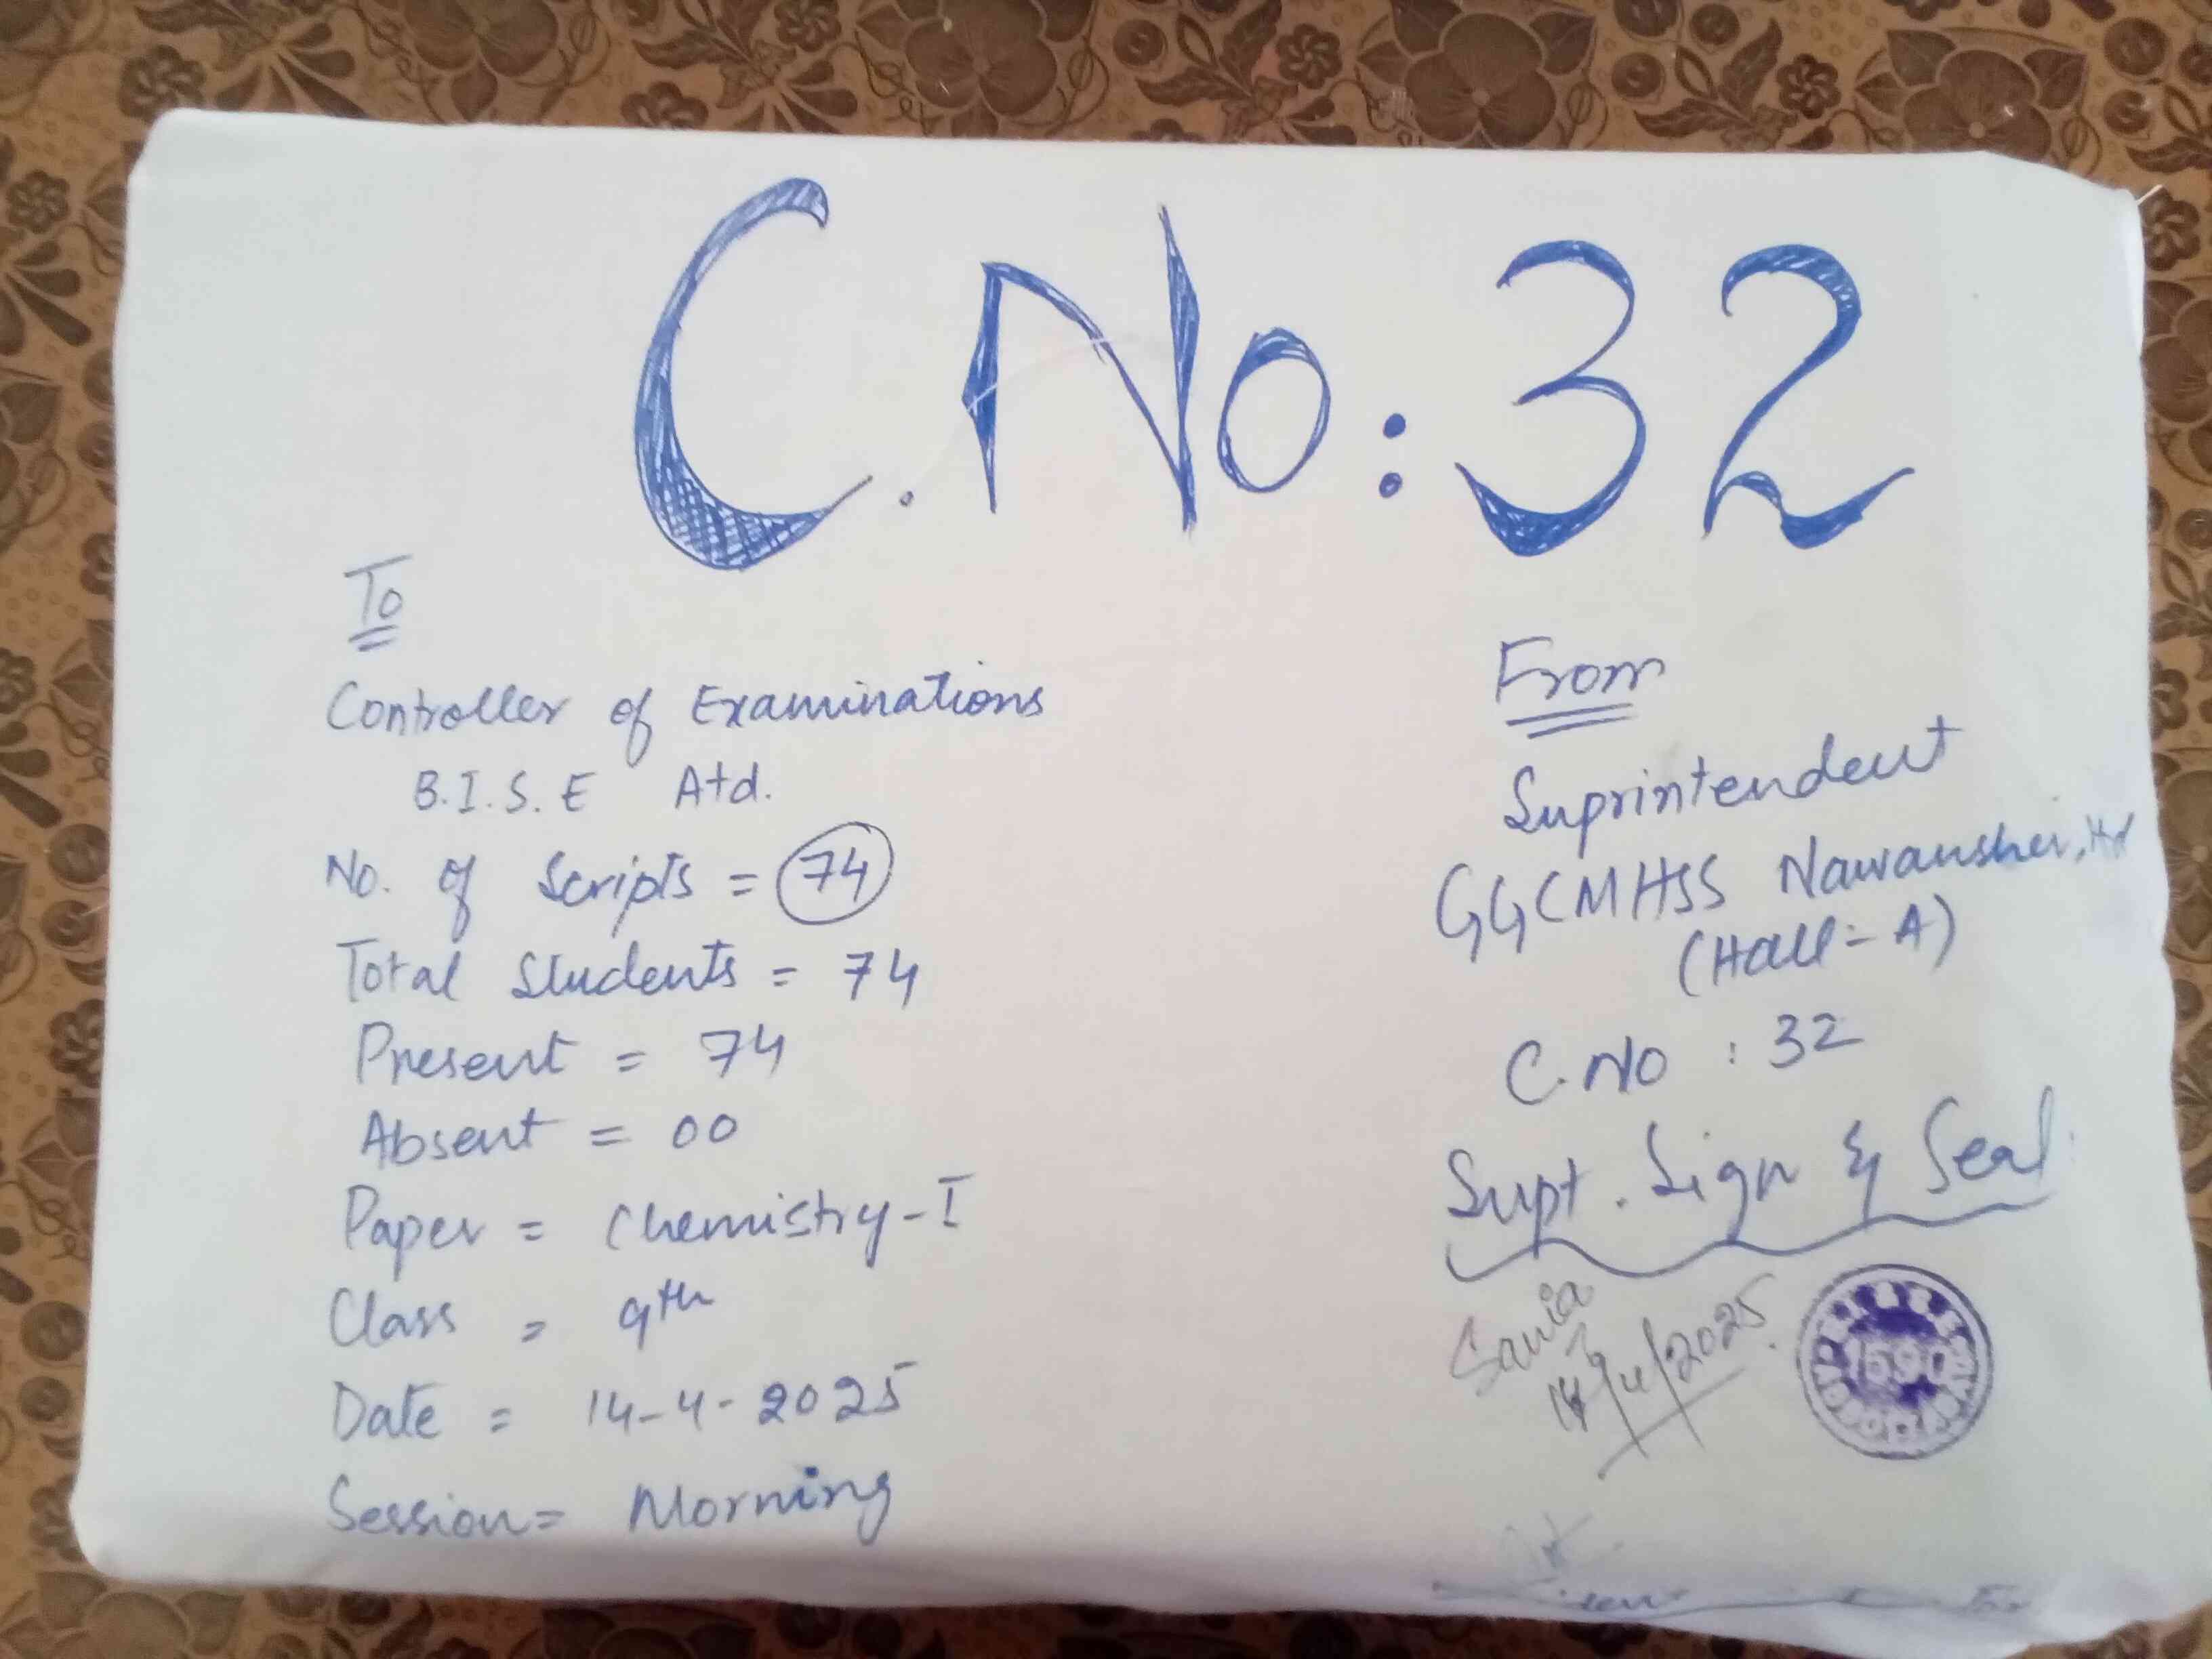 C.No:32
To
Controller of Examinations
B.I.S.E Atd.
No. of Scripts = 74
Total Students = 74
Present = 74
Absent = 00
Paper = Chemistry-I
Class = 9th
Date = 14-4-2025
Session = Morning
From
Suprintendent
GGCMHSS Nawansher,
(Hall-A)
C.No : 32
Supt. Sign & Seal
14/4/2025
1590